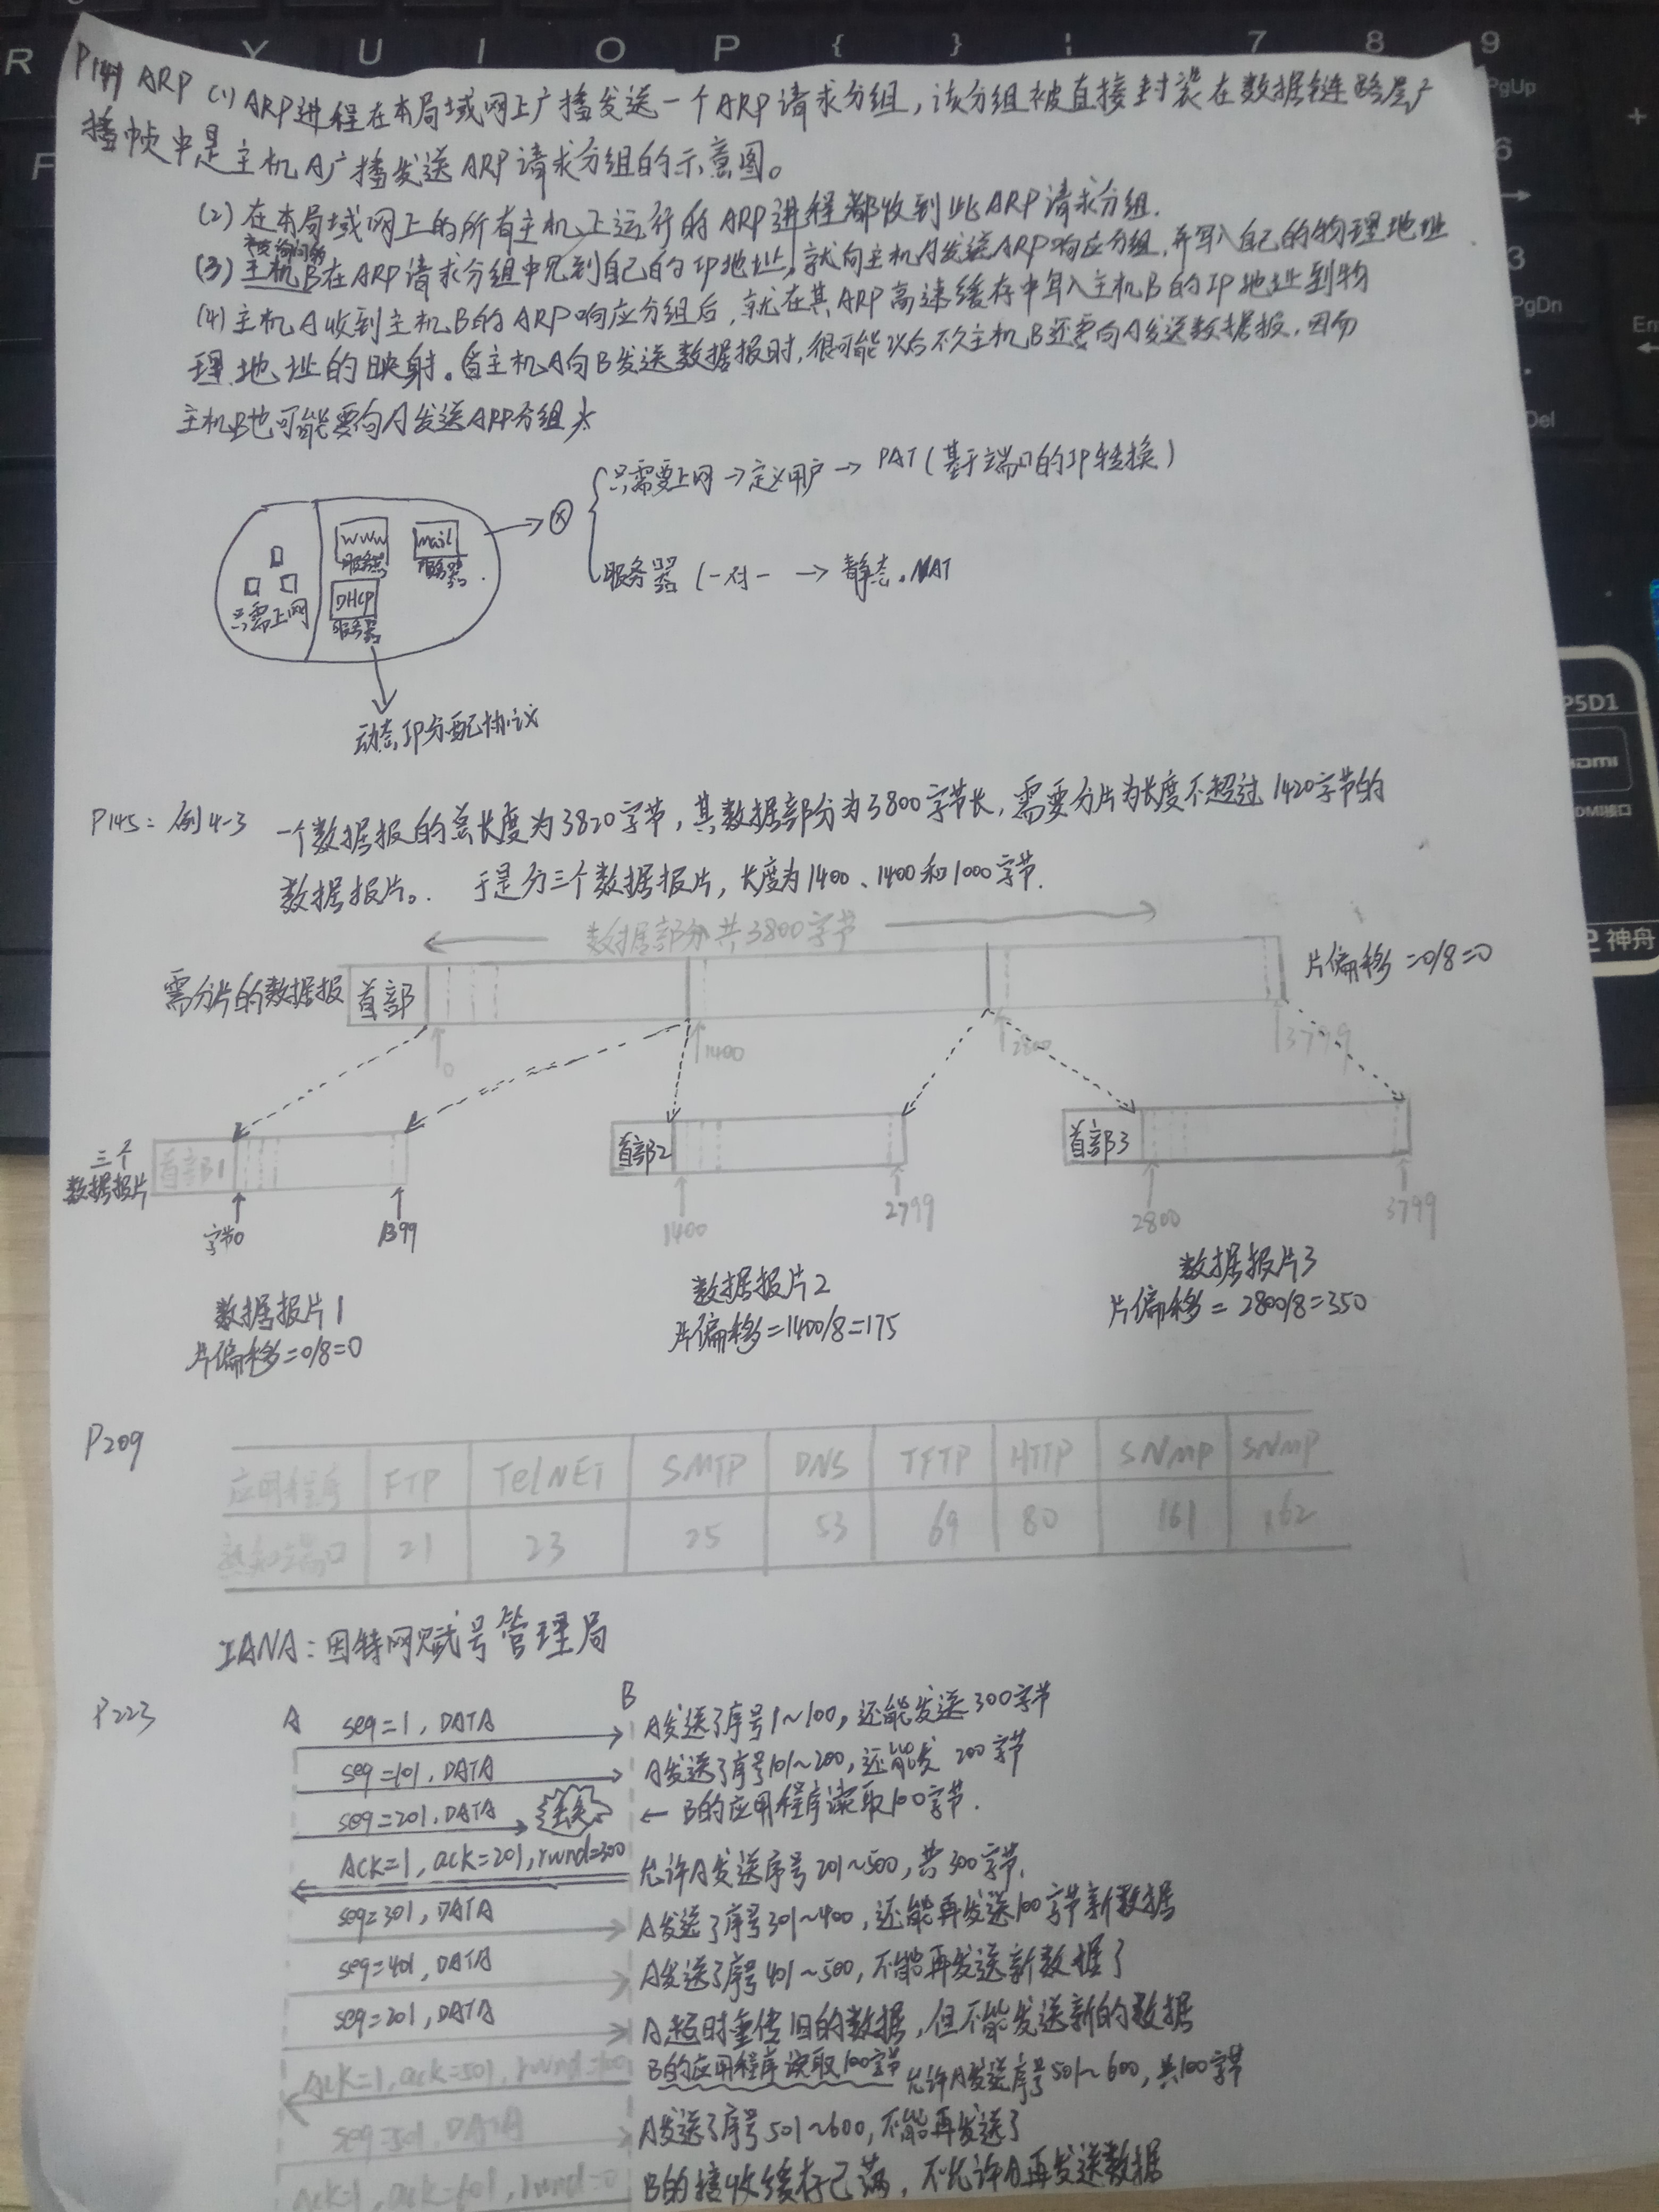 R Y U I O P { } 7 8 9
F
PgUp
+
6
3
PgDn
Del
P5D1
HDMI接口
神舟
P141 ARP (1) ARP进程在本局域网上广播发送一个ARP请求分组，该分组被直接封装在数据链路层广
播帧中是主机A广播发送ARP请求分组的示意图。
(2) 在本局域网上的所有主机上运行的ARP进程都收到此ARP请求分组.
(3) 主机B在ARP请求分组中见到自己的IP地址，就向主机A发送ARP响应分组，并写入自己的物理地址
(4) 主机A收到主机B的ARP响应分组后，就在其ARP高速缓存中写入主机B的IP地址到物
理地址的映射。当主机A向B发送数据报时，很可能以后不久主机B还要向A发送数据报，因而
主机B也可能要向A发送ARP分组
只需要上网→定义用户→PAT(基于端口的IP转换)
服务器 (一对一 → 静态.NAT
只需上网
WWW
服务器
mail
服务器
DHCP
服务器
动态IP分配协议
P145: 例4-3 一个数据报的总长度为3820字节，其数据部分为3800字节长，需要分片为长度不超过1420字节的
数据报片。. 于是分三个数据报片，长度为1400、1400和1000字节.
数据部分共3800字节
需分片的数据报 首部 片偏移=0/8=0
0 1400 2800 3799
三个
数据报片
首部1 首部2 首部3
字节0 1399 1400 2799 2800 3799
数据报片1
片偏移=0/8=0
数据报片2
片偏移=1400/8=175
数据报片3
片偏移=2800/8=350
P209
应用程序 FTP TelNET SMTP DNS TFTP HTTP SNMP SNMP
熟知端口 21 23 25 53 69 80 161 162
IANA：因特网赋号管理局
P223
A B
seq=1, DATA A发送了序号1~100，还能发送300字节
seq=101, DATA A发送了序号101~200，还能发 200字节
seq=201, DATA 丢失 ← B的应用程序读取100字节.
ACK=1, ack=201, rwnd=300 允许A发送序号201~500，共300字节.
seq=301, DATA A发送了序号301~400，还能再发送100字节新数据
seq=401, DATA A发送了序号401~500，不能再发送新数据了
seq=201, DATA A超时重传旧的数据，但不能发送新的数据
ACK=1, ack=501, rwnd=100 B的应用程序读取100字节 允许A发送序号501~600，共100字节
seq=501, DATA A发送了序号501~600，不能再发送了
ACK=1, ack=601, rwnd=0 B的接收缓存已满，不允许A再发送数据